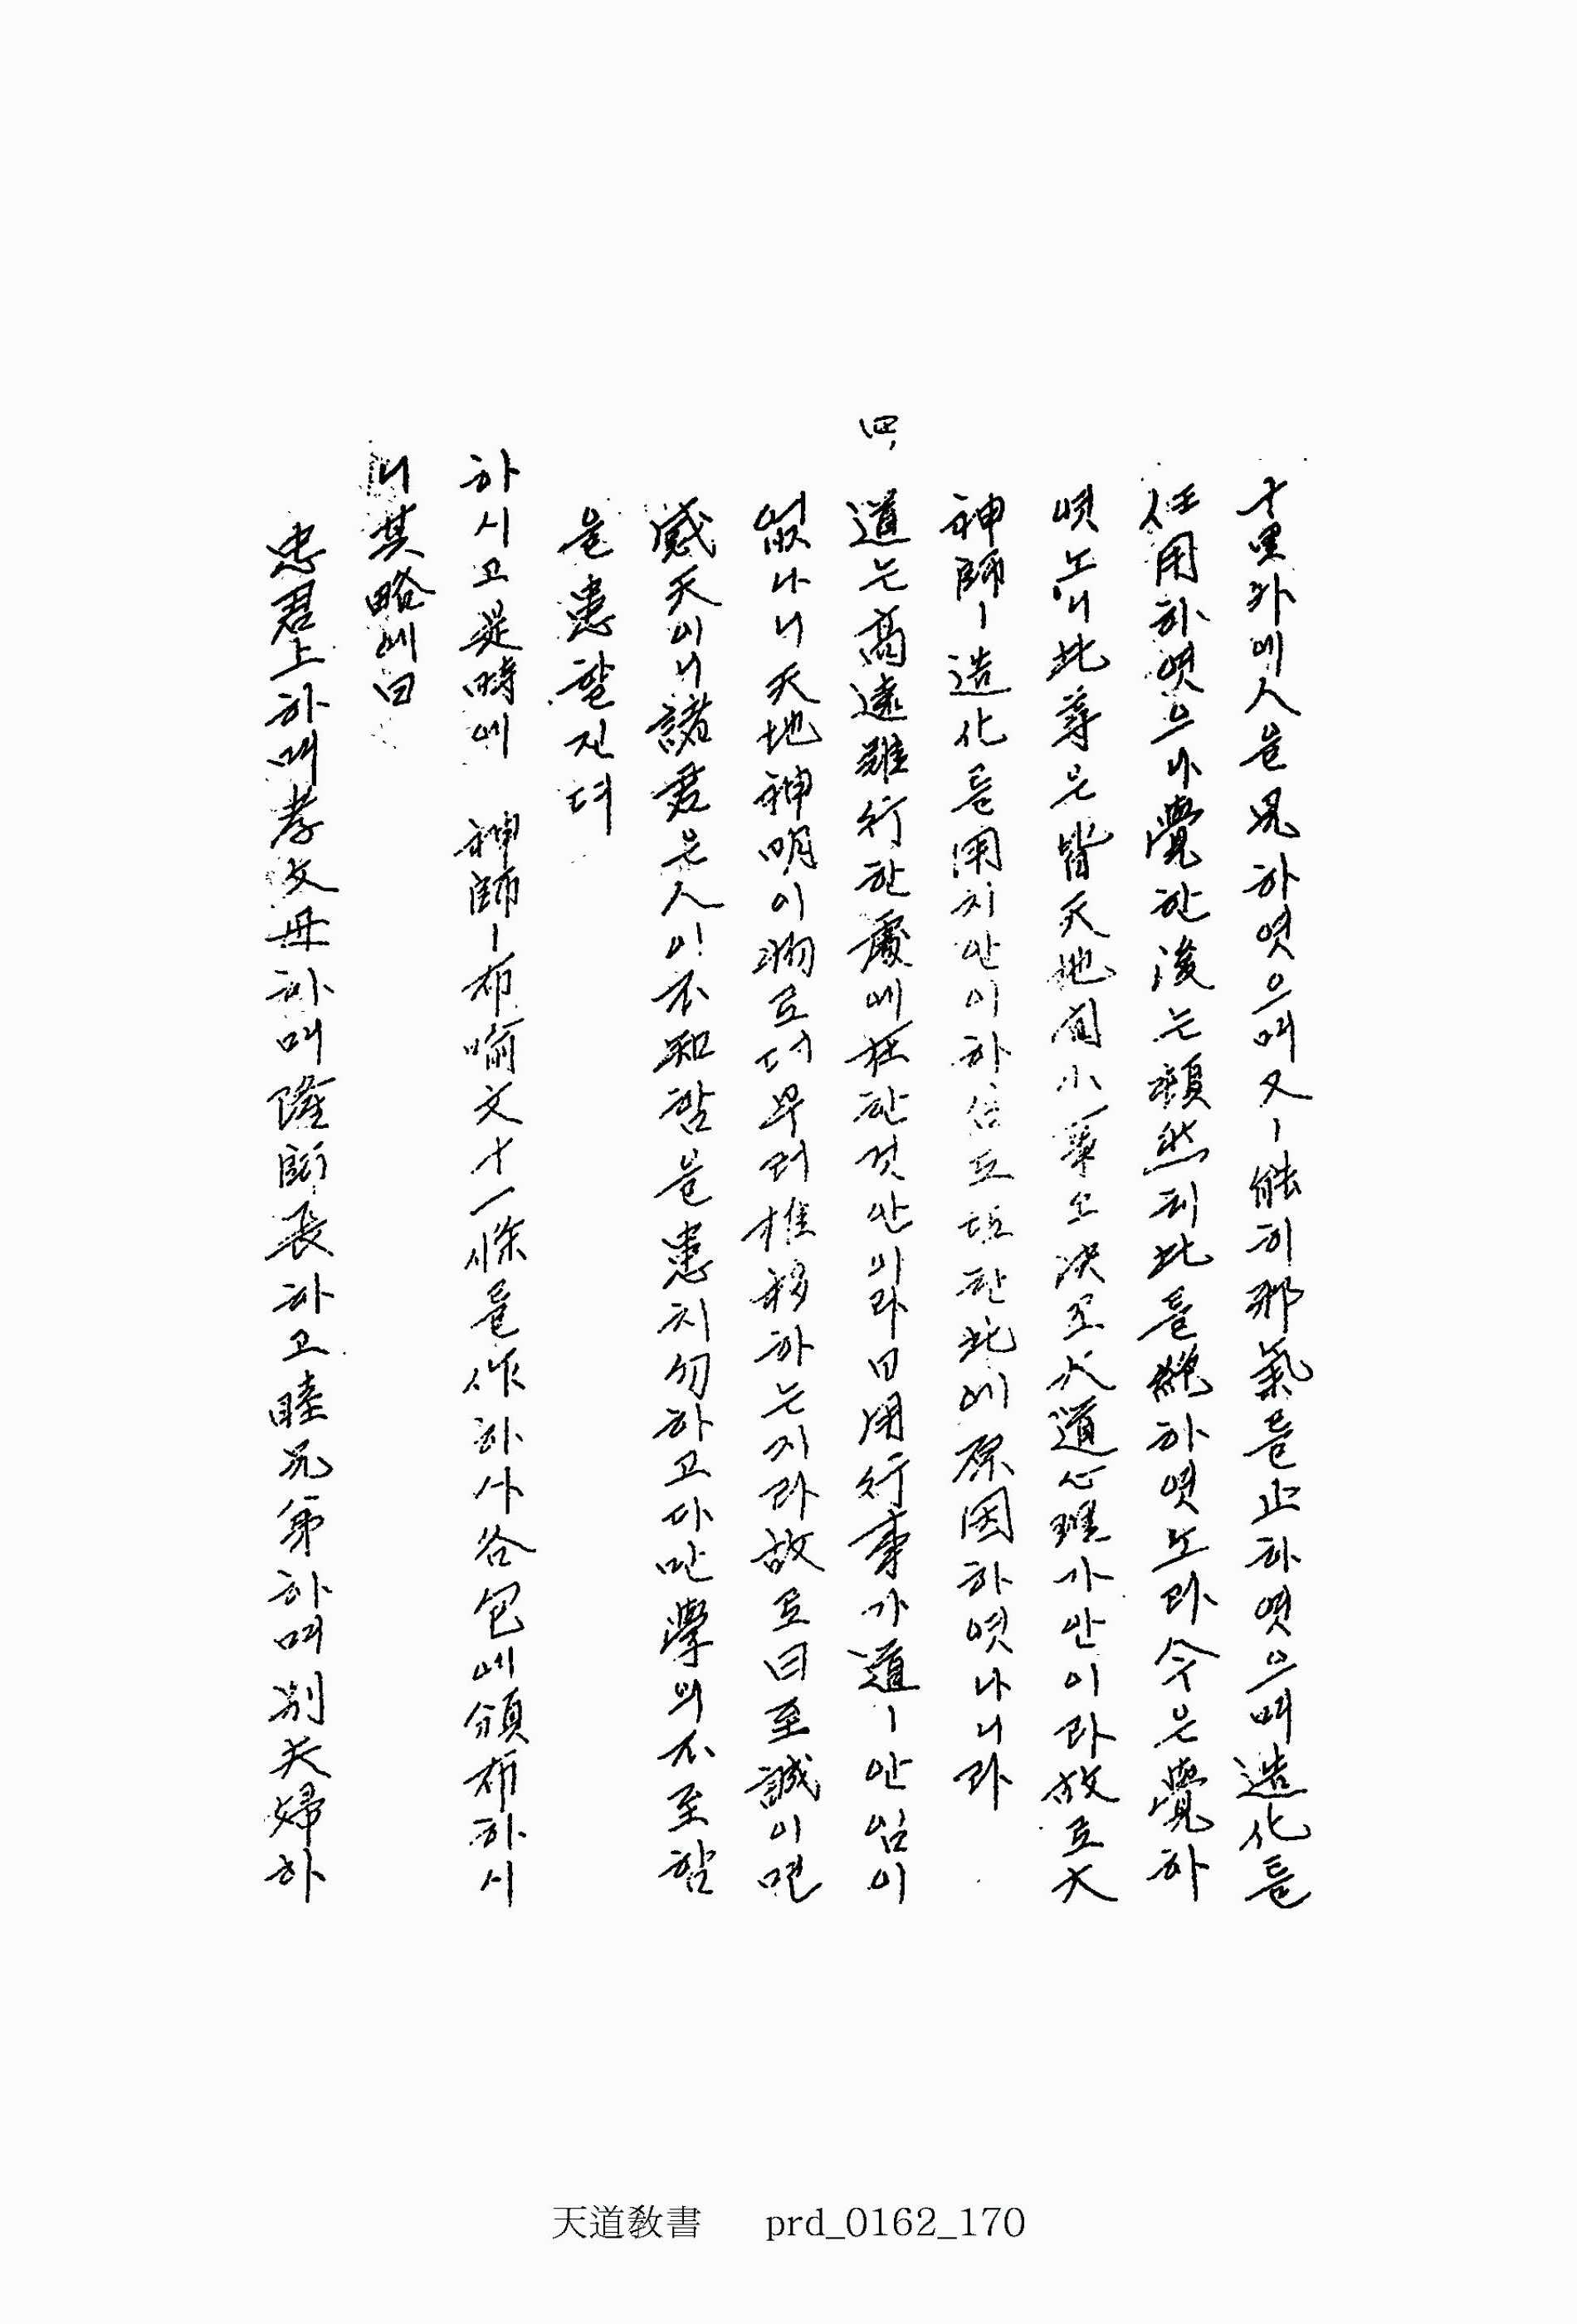 十里外에人을見하엿으며又ㅣ能히邪氣를止하엿으며造化를
任用하엿으나覺한後는頹然히此를絶하엿노라今은覺하
엿노니此等은皆天地間小事오決코大道心理가안이라故로大
神師ㅣ造化를用치안이하심도또한此에原因하엿나니라
四,道는高遠難行한處에在한것안이라日用行事가道ㅣ안임이
없나니天地神明이物로더부러推移하는지라故로曰至誠이면
感天이니諸君은人이不知함을患치勿하고다만學의不至함
을患할진뎌
하시고是時에 神師ㅣ布喩文十一條를作하사各包에頒布하시
니其略에曰
忠君上하며孝父母하며隆師長하고睦兄弟하며別夫婦하
天道敎書 prd_0162_170